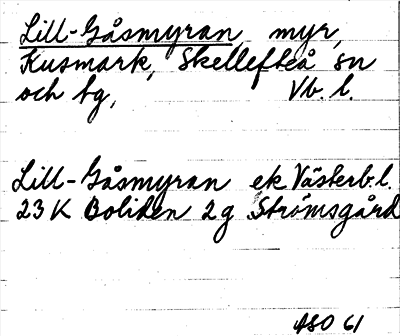 Lill-Gåsmyran myr,
Kusmark, Skellefteå sn
och tg, Vb. l.
Lill-Gåsmyran ek Västerb.l.
23 K Boliden 2g Strömsgård
ASO 61